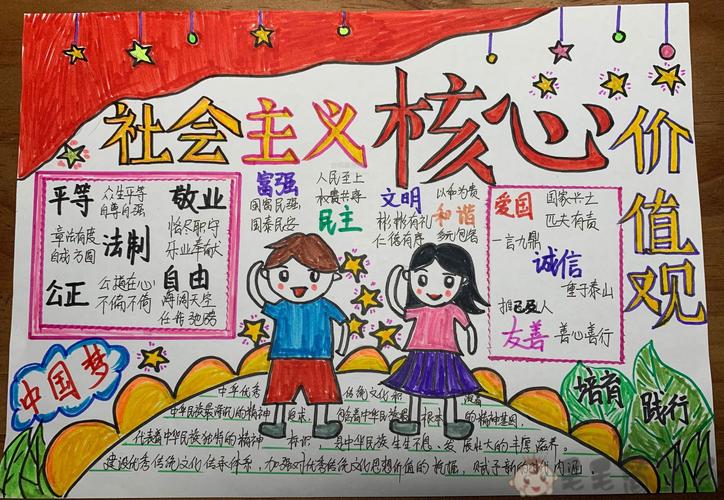 社会主义核心价值观
平等
众生平等
自尊自强
敬业
恪尽职守
乐业奉献
章法有度
自成方圆
法制
公正
公道在心
不偏不倚
自由
海阔天空
任君驰骋
富强
国富民强
国泰民安
人民至上
民主
文明
彬彬有礼
仁德有序
以和为贵
和谐
多元包容
爱国
国家兴亡
匹夫有责
一言九鼎
诚信
重于泰山
友善
善心善行
中国梦
培育
践行
中华优秀 传统文化
中华民族最深沉的精神追求
根本的精神基因,
代表着中华民族独特的精神标识,是中华民族生生不息、发展壮大的丰厚滋养。
建设优秀传统文化传承体系,加强对优秀传统文化思想价值的挖掘,赋予新的时代内涵